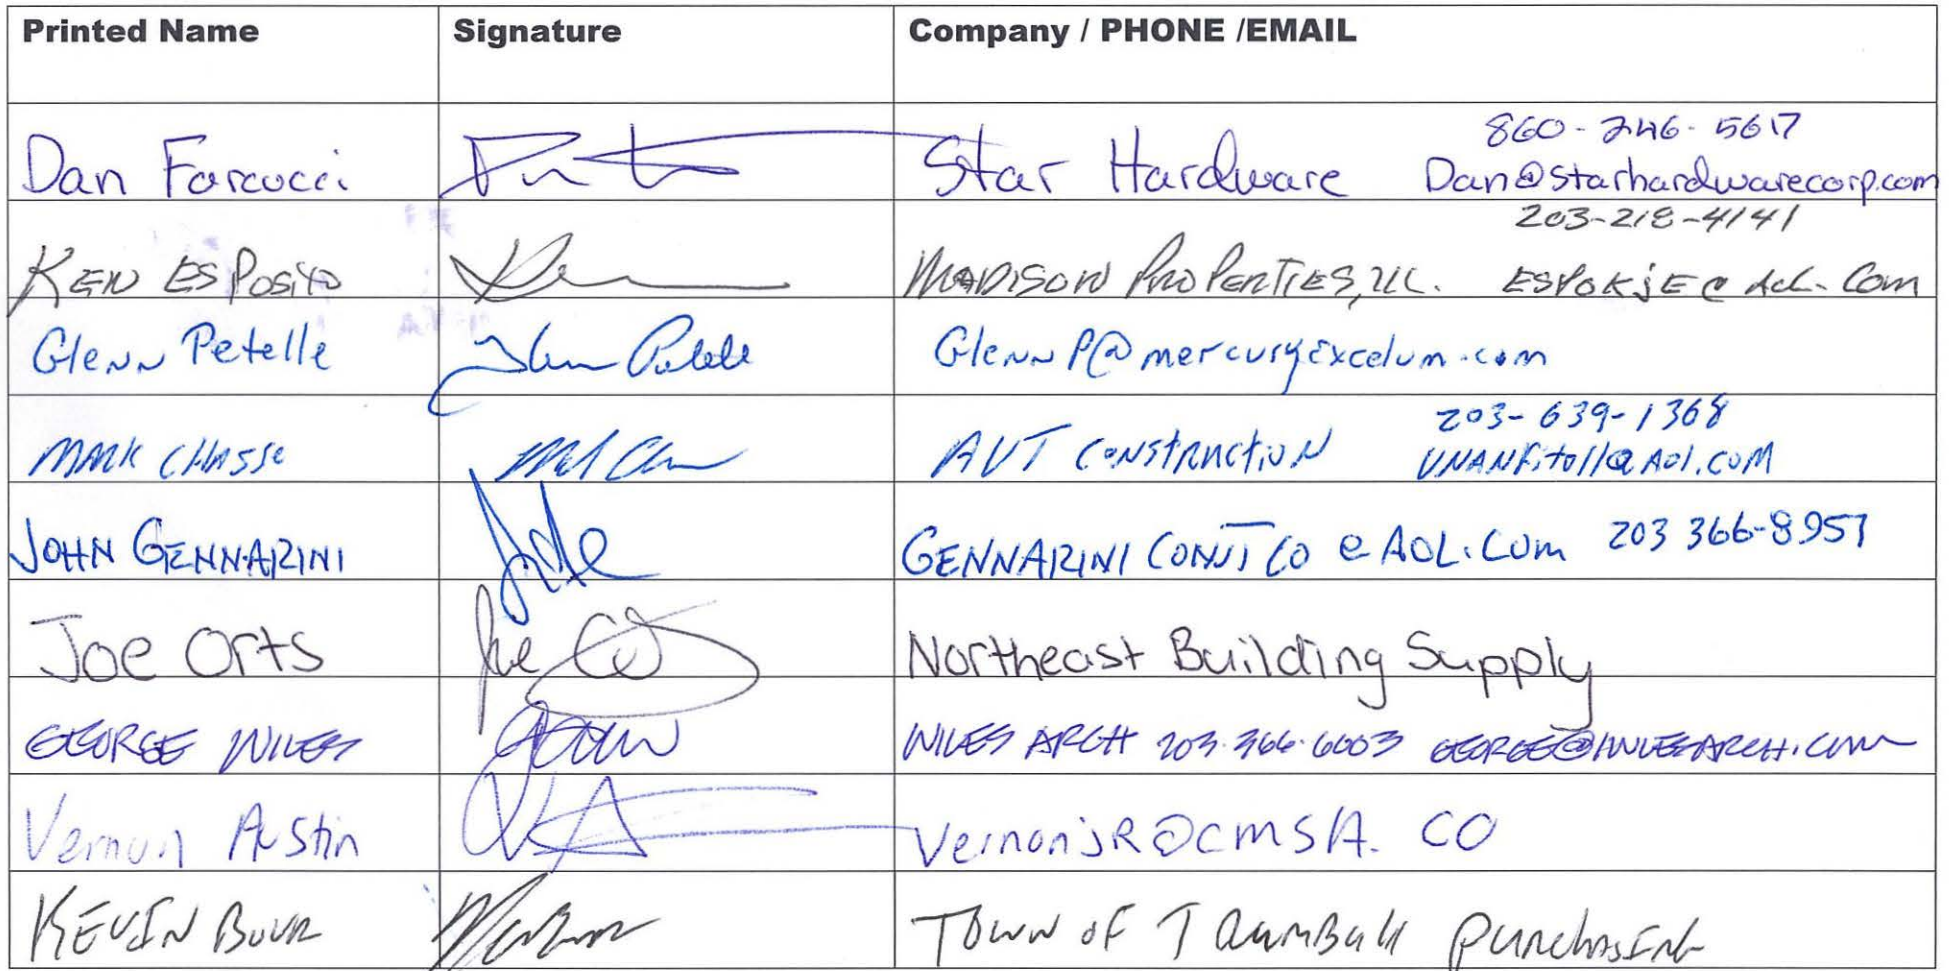 Printed Name Signature Company / PHONE /EMAIL
860-246-5617
Dan Farcucci Star Hardware Dan@starhardwarecorp.com
203-218-4141
KEN ESPOSITO MADISON PROPERTIES, LLC. ESPOKJE@AOL.Com
Glenn Petelle Glenn Petelle GlennP@mercuryExcelum.com
203-639-1368
MARK CHASSE AVT CONSTRUCTION @AOL.COM
JOHN GENNARINI GENNARINI CONST CO @ AOL.COM 203 366-8957
Joe Orts Joe Northeast Building Supply
GEORGE WILES WILES ARCH 203.366.6003 GEORGE@WILESARCH.COM
Vernon Austin VernonJR@CMSA.CO
KEVIN BOVA TOWN OF TRUMBULL PURCHASING